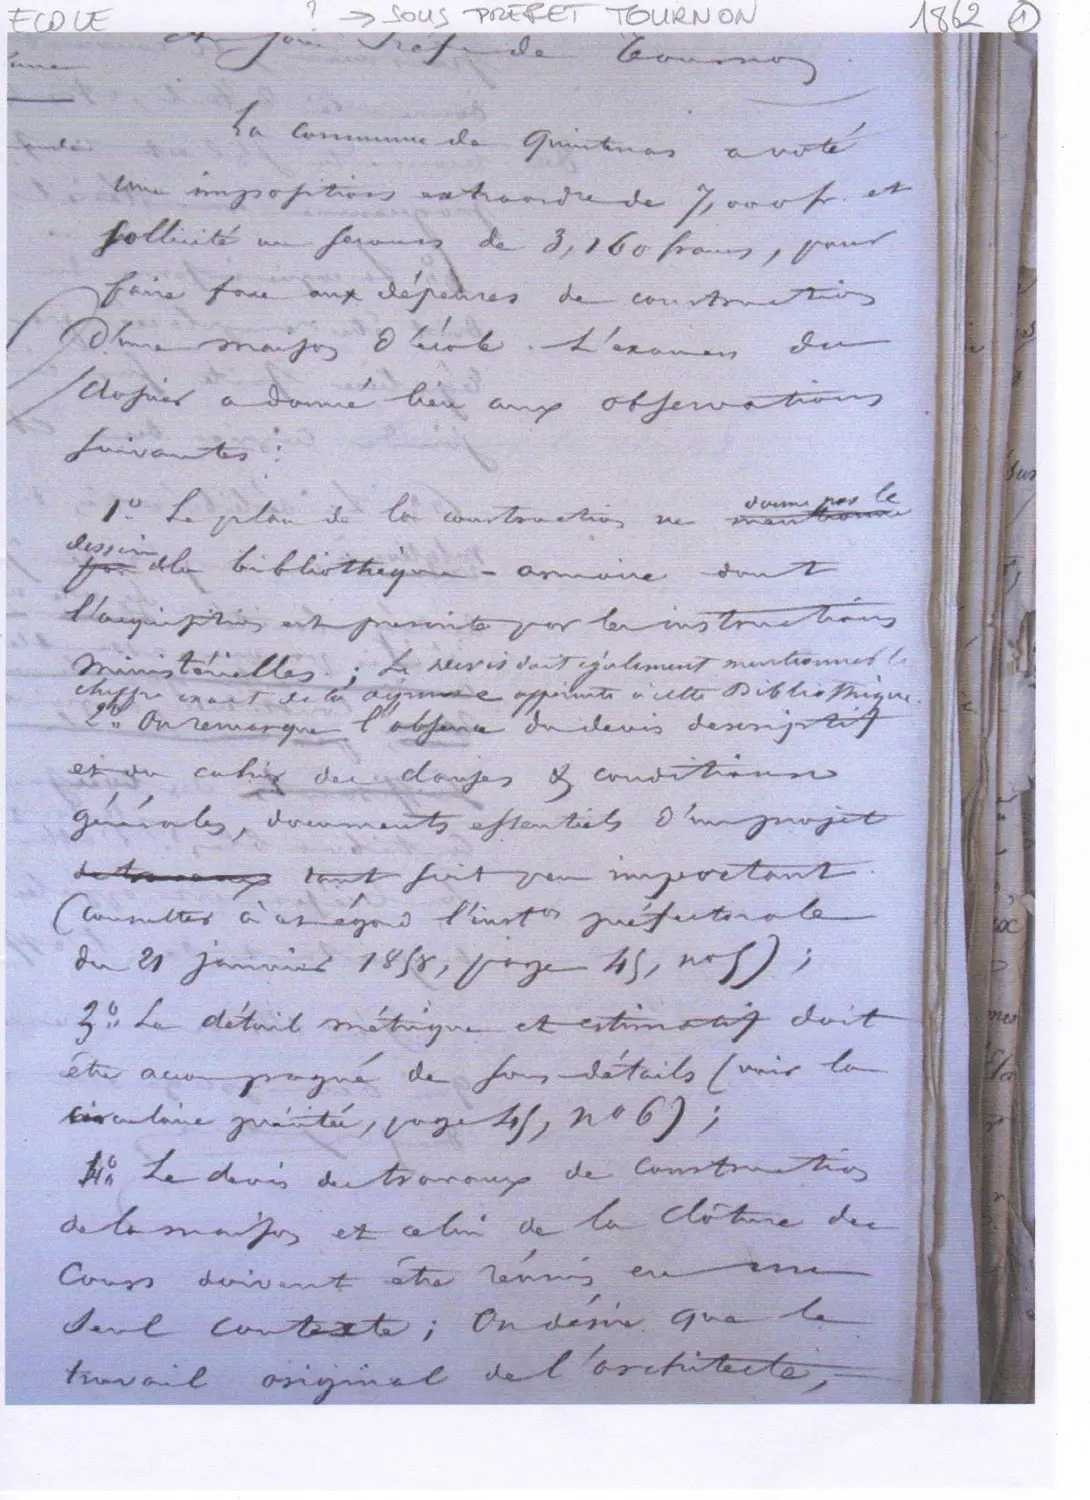 ECOLE ? → SOUS PREFET TOURNON 1862 ①
Sous Préfet de Tournon
La Commune de Quintenas a voté
une imposition extraordre de 7,000 fr. et
sollicité un secours de 3,160 francs, pour
faire face aux dépenses de construction
d'une maison d'école. L'examen du
dossier a donné lieu aux observations
suivantes :
1° Le plan de la construction ne mentionne donne pas le
dessin pas de la bibliothèque - armoire dont
l'acquisition est prescrite par les instructions
ministérielles ; Le devis doit également mentionner le
chiffre exact de la dépense afférente à cette Bibliothèque.
2° On remarque l'absence du devis descriptif
et du cahier des clauses & conditions
générales, documents essentiels d'un projet
de travaux tant soit peu important.
(Consulter à cet égard l'inston préfectorale
du 21 janvier 1858, page 45, n° 5) ;
3° Le détail métrique et estimatif doit
être accompagné de sous-détails (voir la
circulaire précitée, page 45, n° 6) ;
4° Le devis des travaux de construction
de la maison et celui de la clôture des
Cours doivent être réunis en un
seul contexte ; On désire que le
travail original de l'architecte,